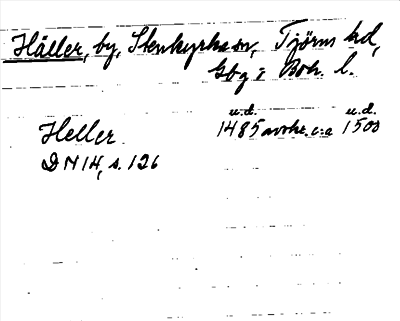 Häller, by, Stenkyrka sn, Tjörns hd,
Gbg o Boh. l.
u.d. u.d.
Heller 1485 avskr. c:a 1500
DN 14, s. 126